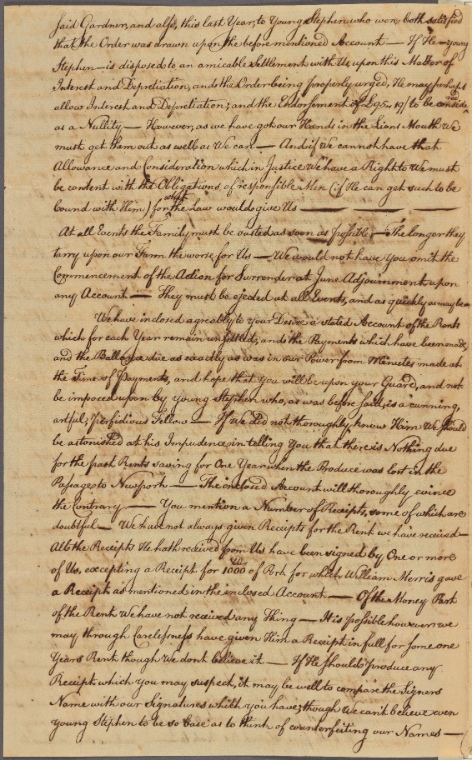 said Gardner, and also, this last Year, to Young Stephen who were both satisfied
that the Order was drawn upon the before mentioned Account — If He — young
Stephen — is disposed to an amicable Settlement with Us upon this Matter of
Interest and Depretiation, and the Order being properly urged, He may perhaps
allow Interest and Depretiation; and the Endorsement of to be
as a Nullity — However, as we have got our Hands in the Lions Mouth We
must get them out as well as We can — And if We cannot have that
Allowance and Consideration which in Justice We have a Right to We must
be content with the Obligations of responsible Men (if He can get such to be
bound with Him) for what the Law would give Us —
At all Events the Family must be ousted as soon as possible — The longer they
tarry upon our Farm the worse for Us — We would not have You omit the
Commencement of the Action for Surrender at June Adjournment upon
any Account — They must be ejected at all Events, and as quickly as may be
We have inclosed agreably to your Desire a stated Account of the Rents
which for each Year remain unsettled, and the Payments which have been made,
and the Ballance due as exactly as was in our Power from Minutes made at
the Time of Payments, and hope that You will be upon your Guard, and not
be imposed upon by young Stephen who, as was before said, is a cunning,
artful, perfidious Fellow — If we did not thoroughly know Him We should
be astonished at his Impudence in telling You that there is Nothing due
for the past Rents saving for One Year when the Produce was lost in the
Passage to Newport — The inclosed Account will thoroughly evince
the Contrary — You mention a Number of Receipts, some of which are
doubtful — We have not always given Receipts for the Rent we have received —
All the Receipts He hath received from Us have been signed by One or more
of Us, excepting a Receipt for 1000 of Pork for which William Merris gave
a Receipt as mentioned in the enclosed Account — Of the Money Part
of the Rent We have not received any Thing — It is possible however we
may through Carelessness have given Him a Receipt in full for some one
Years Rent though We dont believe it — If He should produce any
Receipt which You may suspect, it may be well to compare the Signers
Name with our Signatures which you have; though We can't believe even
young Stephen to be so base as to think of counterfeiting our Names —